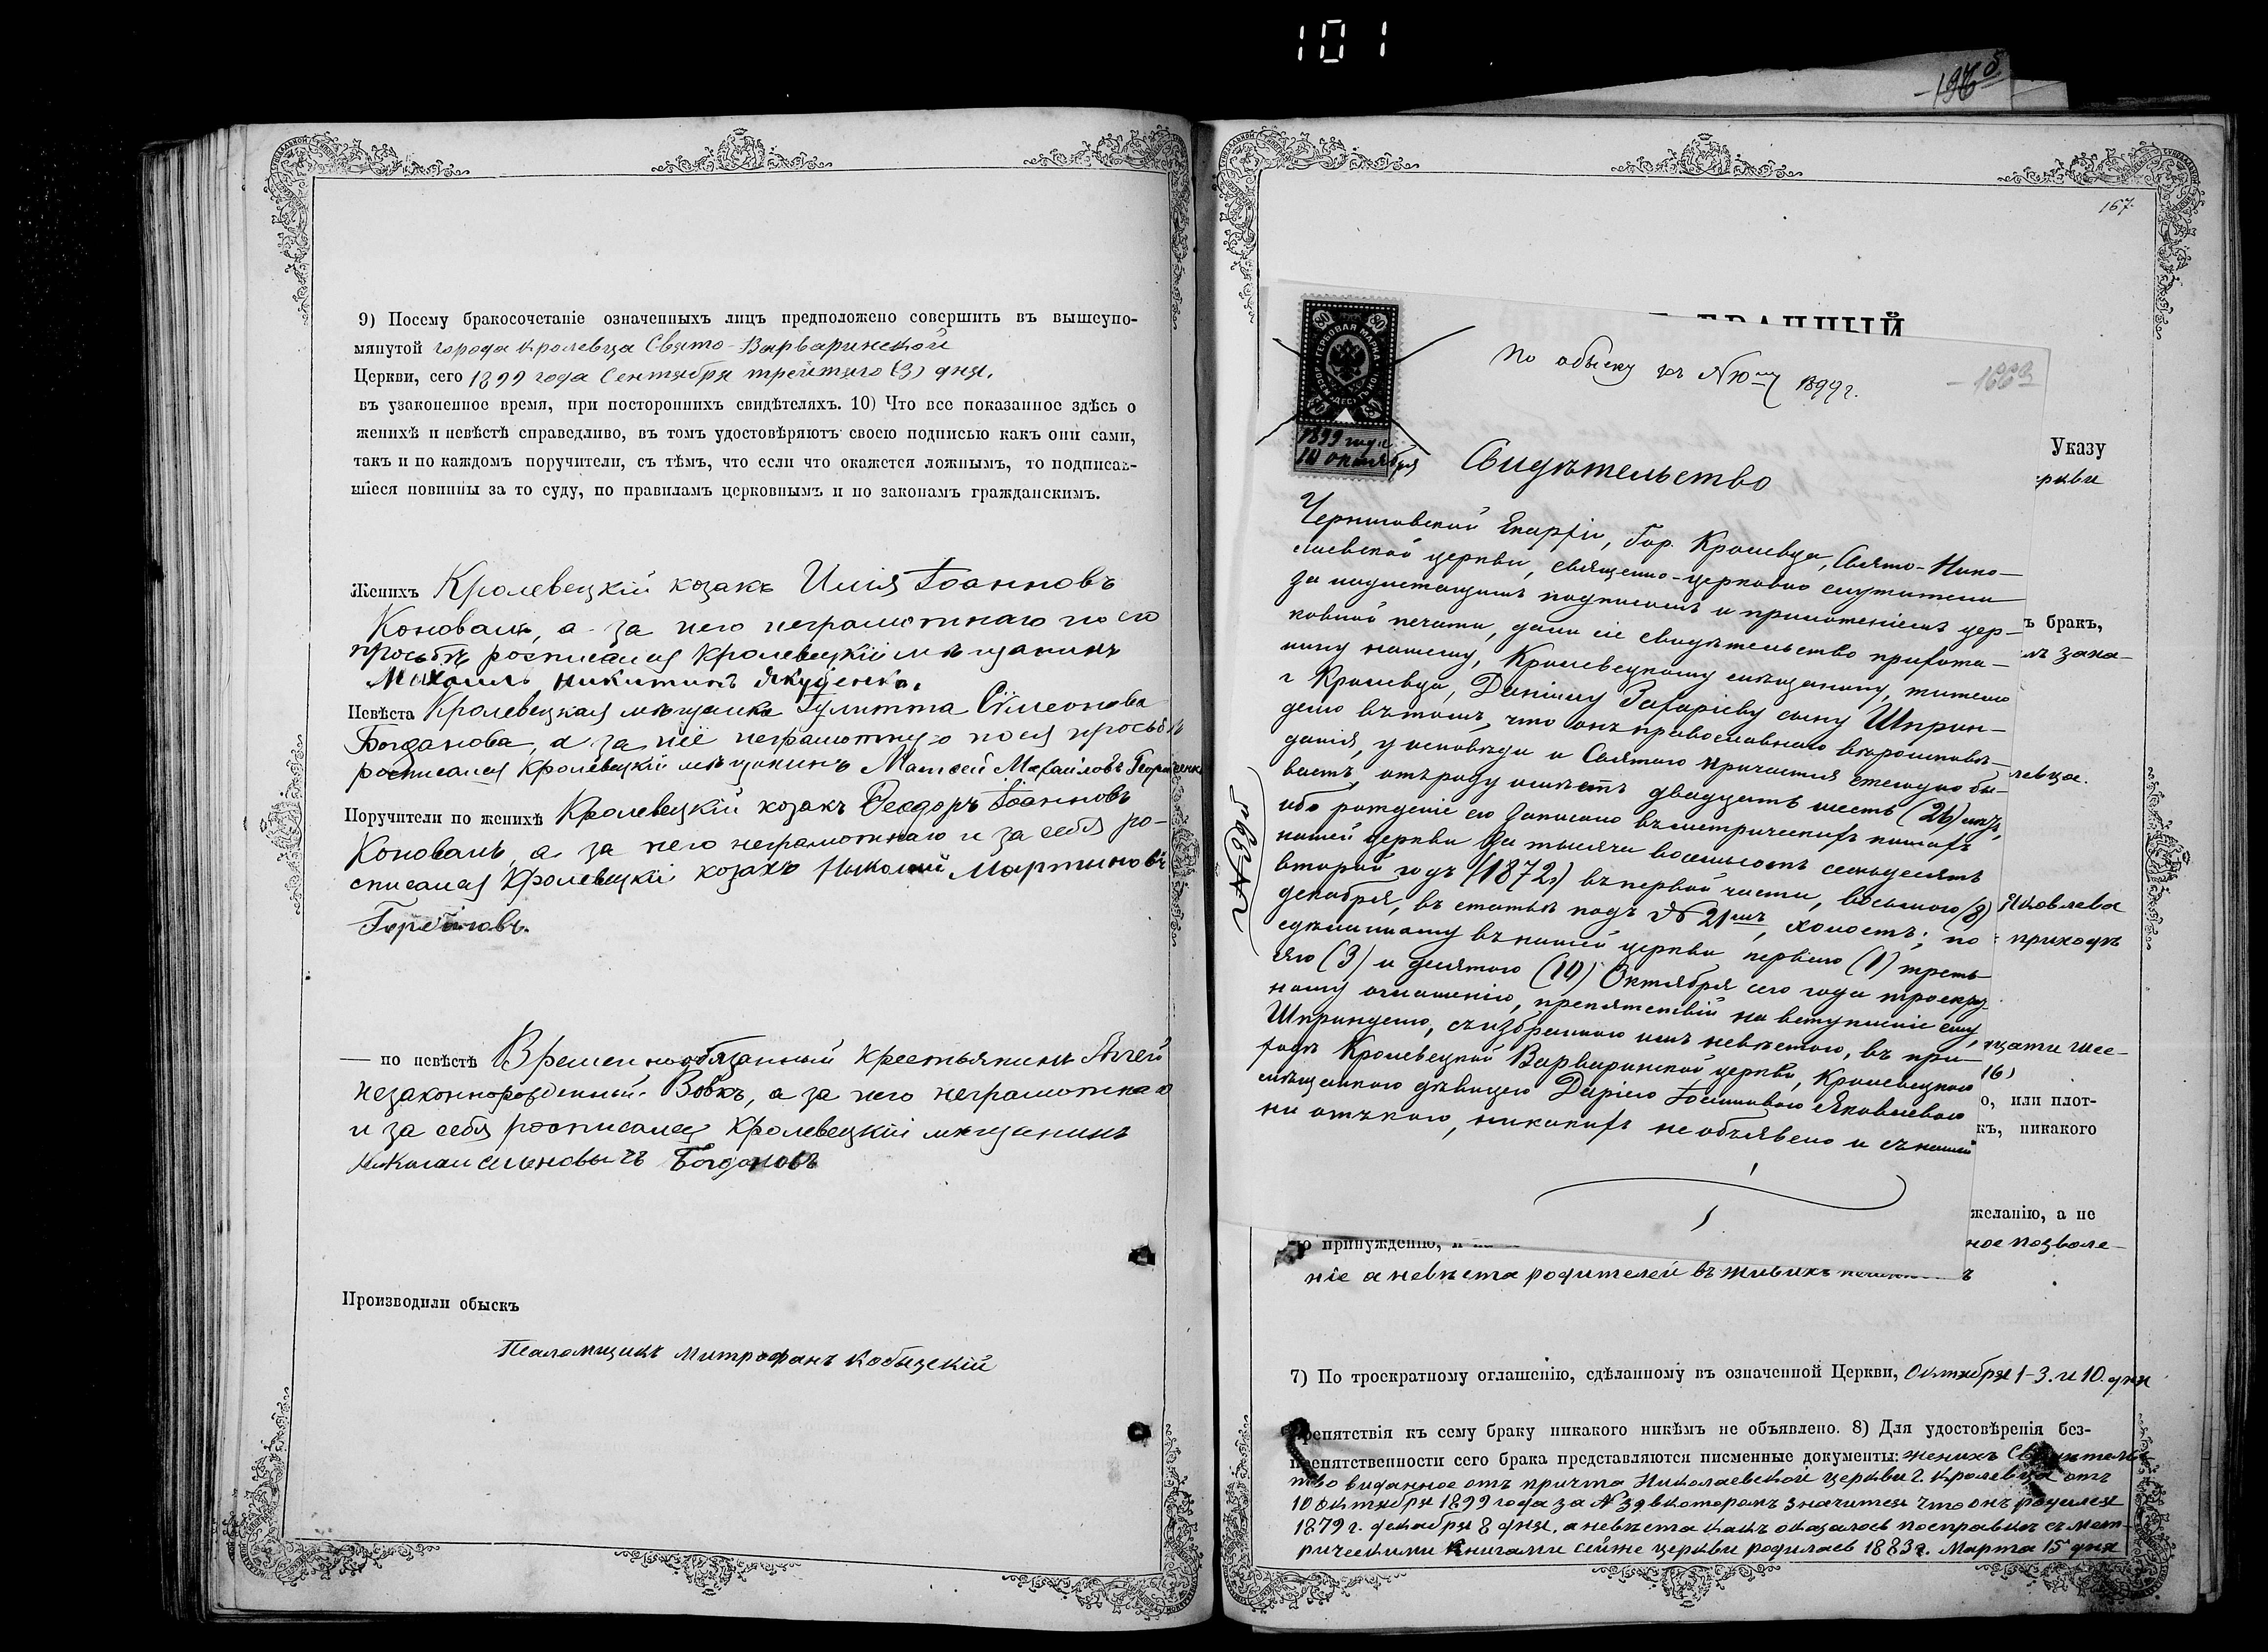 101
9) Посему бракосочетаніе означенныхъ лицъ предположено совершить въ вышеупо-
мянутой города Кролевца Свято-Варваринской
Церкви, сего 1899 года Сентября третяго (3) дня.
въ узаконенное время, при постороннихъ свидѣтеляхъ. 10) Что все показанное здѣсь о
женихѣ и невѣстѣ справедливо, въ томъ удостовѣряютъ своею подписью какъ они сами,
такъ и по каждомъ поручители, съ тѣмъ, что если что окажется ложнымъ, то подписав-
шіеся повинны за то суду, по правиламъ церковнымъ и по законамъ гражданскимъ.
Женихъ Кролевецкій козакъ Илія Іоанновъ
Коновалъ, а за него неграмотнаго по его
просьбѣ росписался Кролевецкій мѣщанинъ
Михаилъ Никитинъ Якуценко.
Невѣста Кролевецкая мѣщанка Іулитта Сімеонова
Богданова, а за неё неграмотную по ея просьбѣ
росписался Кролевецкій мѣщанинъ Матѳей Михайловъ
Поручители по женихѣ Кролевецкій козакъ Ѳеодоръ Іоанновъ
Коновалъ, а за него неграмотнаго и за себя ро-
списался Кролевецкій козакъ Николай Мартиновъ
— по невѣстѣ Временнообязанный крестьянинъ
незаконнорожденный Вовкъ, а за него неграмотнаго
и за себя росписался Кролевецкій мѣщанинъ
Богдановъ
Производили обыскъ
Псаломщикъ Митрофанъ Кобызскій
167.
По обыску къ № 10му 1899 г.
ГЕРБОВАЯ МАРКА
80
1899 года
10 октября
Указу
Свидѣтельство
ркви
Черниговской Епархіи, Гор. Кролевца, Свято-Нико-
лаевской церкви, священно-церковно служители
за надлежащимъ подписомъ и приложеніемъ цер-
ковной печати, дали сіе свидѣтельство прихожа-
ъ бракъ,
нину нашему, Кролевецкому мѣщанину, жителю
г Кролевца, Даніилу Захаріеву сыну Шприн-
делю въ томъ, что онъ православнаго вѣроисповѣ-
данія, у исповѣди и Святаго Причастія ежегодно бы-
левца.
ваетъ, отъ роду имѣетъ двадцать шесть (26) лѣтъ,
ибо рожденіе его записано въ метрическихъ книгахъ
нашей церкви за тысяча восемьсотъ семьдесятъ
второй годъ (1872) въ первой части, восьмого (8)
Яковлева
декабря, въ статьѣ подъ № 21мъ, холостъ; по
приходѣ
сдѣланному въ нашей церкви перваго (1) треть-
яго (3) и десятого (10) Октября сего года троекрат-
ному оглашенію, препятствій на вступленіе ему,
Шпринделю, съ избранною имъ невѣстою, въ при-
цати шес-
ходѣ Кролевецкой Варваринской церкви, Кролевецкою
16)
мѣщанкою дѣвицею Даріею Іоанновою Яковлевою
о, или плот-
ни отъ кого, никакихъ не объявлено и съ нашей
къ, никакого
желанію, а не
по принужденію, и
ное позволе-
ніе а невѣста родителей въ живыхъ
7) По троекратному оглашенію, сдѣланному въ означенной Церкви, Октября 1-3. и 10. дня
препятствія къ сему браку никакого никѣмъ не объявлено. 8) Для удостовѣренія без-
препятственности сего брака представляются писменные документы: женихъ Свидѣтельс
тво виданное отъ причта Николаевской церкви г. Кролевца отъ
10 октября 1899 года за № 39 въ которомъ значится что онъ родился
1879 г. декабря 8 дня, а невѣста какъ оказалось по справкѣ съ мет-
рическими книгами сейже церкви родилась 1883 г. Марта 15 дня